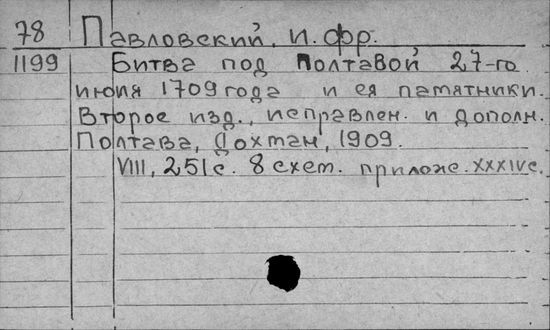 78 Павловский, И. Фр.
1199 Битва под Полтавой 27-го
июня 1709 года и ея памятники.
Второе изд., исправлен. и дополн.
Полтава, Дохман, 1909.
VIII, 251 с. 8 схем. прилож. XXXIV с.